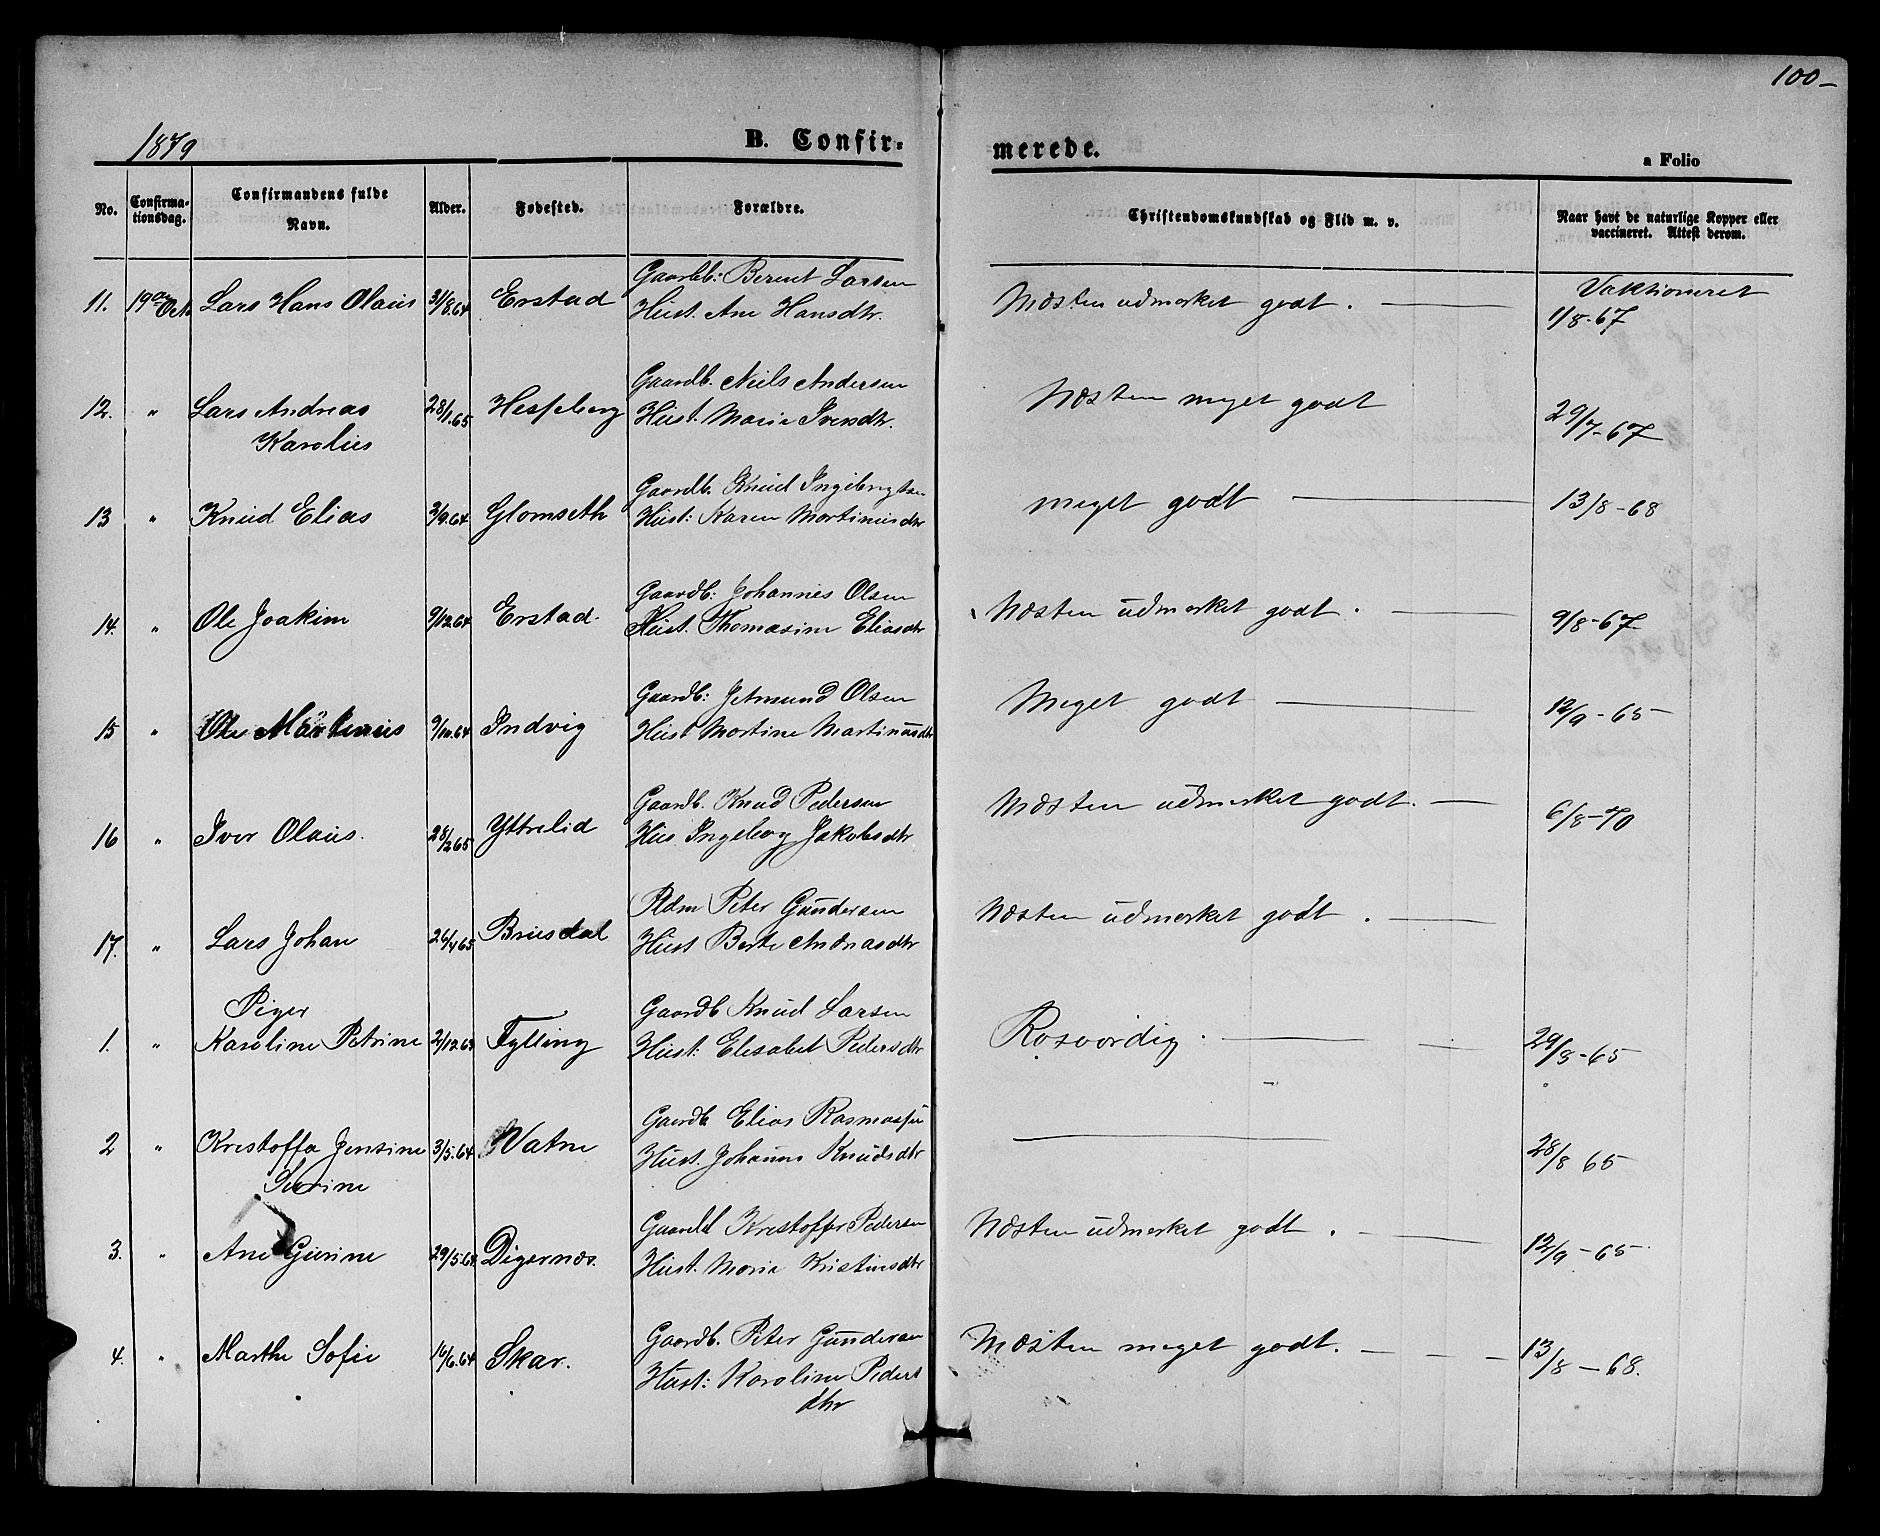 100-
1879
B. Confir-
merede.
a Folio
No.
Confirma-
tionsdag.
Confirmandens fulde
Navn.
Alder.
Fødested.
Forældre.
Christendomskundskab og Flid m. v.
Naar havt de naturlige Kopper eller
vaccineret. Attest derom.
11. 19de Oct. Lars Hans Olaus 31/8.64 Erstad Gaardb: Berent Larsen
Hust. Ane Hansdtr. Næsten udmerket godt. Vaktioneret
1/8-67
12. " Lars Andreas 28/1.65 Hesseberg Gaardb. Niels Andersen
Karolius Hust. Marie Iversdtr. Næsten meget godt 29/7-67
13 " Knud Elias 3/9.64 Glomseth Gaardb. Knud Ingebrigtsen
Hust: Karen Martinusdtr meget godt 13/8-68
14. " Ole Joakim 9/12.64 Erstad. Gaardb: Johannes Olsen
Hust. Thomasine Eliasdtr Næsten udmerket godt. 9/8-67
15 " Ole Martinus 9/10.64 Indvig Gaardb: Jetmund Olsen
Hust Martine Martinusdtr Meget godt 12/9-65
16 " Iver Olaus. 28/2.65 Yttrelid Gaardb. Knud Pedersen
Hus. Ingeborg Jakobsdtr Næsten udmerket godt. 6/8-70
17. " Lars Johan 26/4.65 Brusdal Pldm Peter Gundersen
Hust Berte Andreasdtr Næsten udmerket godt.
Piger
1. " Karoline Petrine 2/12.63 Fylling Gaardb Knud Larsen
Hust: Elisabet Pedersdtr Rosværdig. 29/8-65
2 " Krestoffa Jensine 3/5.64 Vatne Gaardb Elias Rasmussen
Serine Hust. Johanne Knudsdtr 28/8 65
3. " Ane Gurine 29/5.64 Digernæs. Gaardb Krestoffer Pedersen
Hust. Marie Kristiansdtr Næsten udmerket godt. 12/9-65
4. " Marthe Sofie 16/6.64 Skar. Gaardb. Peter Gundersen
Hust: Karoline Peders
dtr Næsten meget godt. 13/8-68.